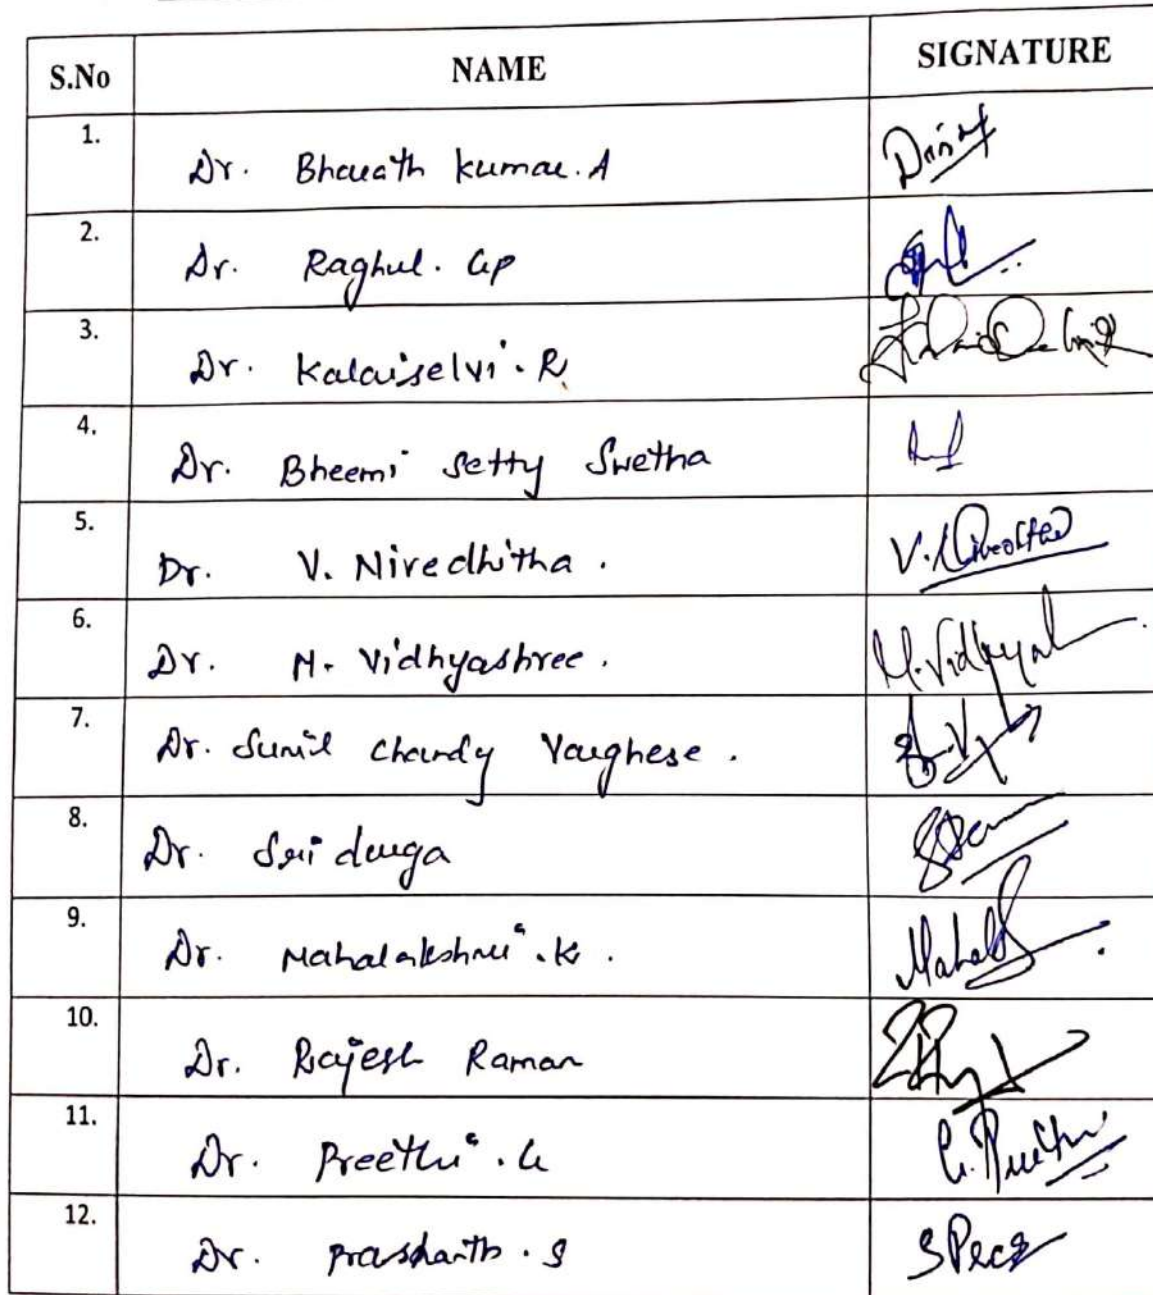 S.No NAME SIGNATURE
1. Dr. Bharath Kumar. A
2. Dr. Raghul. GP
3. Dr. Kalaiselvi. R
4. Dr. Bheemi Setty Swetha
5. Dr. V. Nivedhitha. V. Niveditha
6. Dr. M. Vidhyashree. M. Vidhya
7. Dr. Sunil Chandy Varghese.
8. Dr. Sri durga
9. Dr. Mahalakshmi. K. Mahal
10. Dr. Rajesh Raman
11. Dr. Preethi. G G. Preethi
12. Dr. Prashanth. S